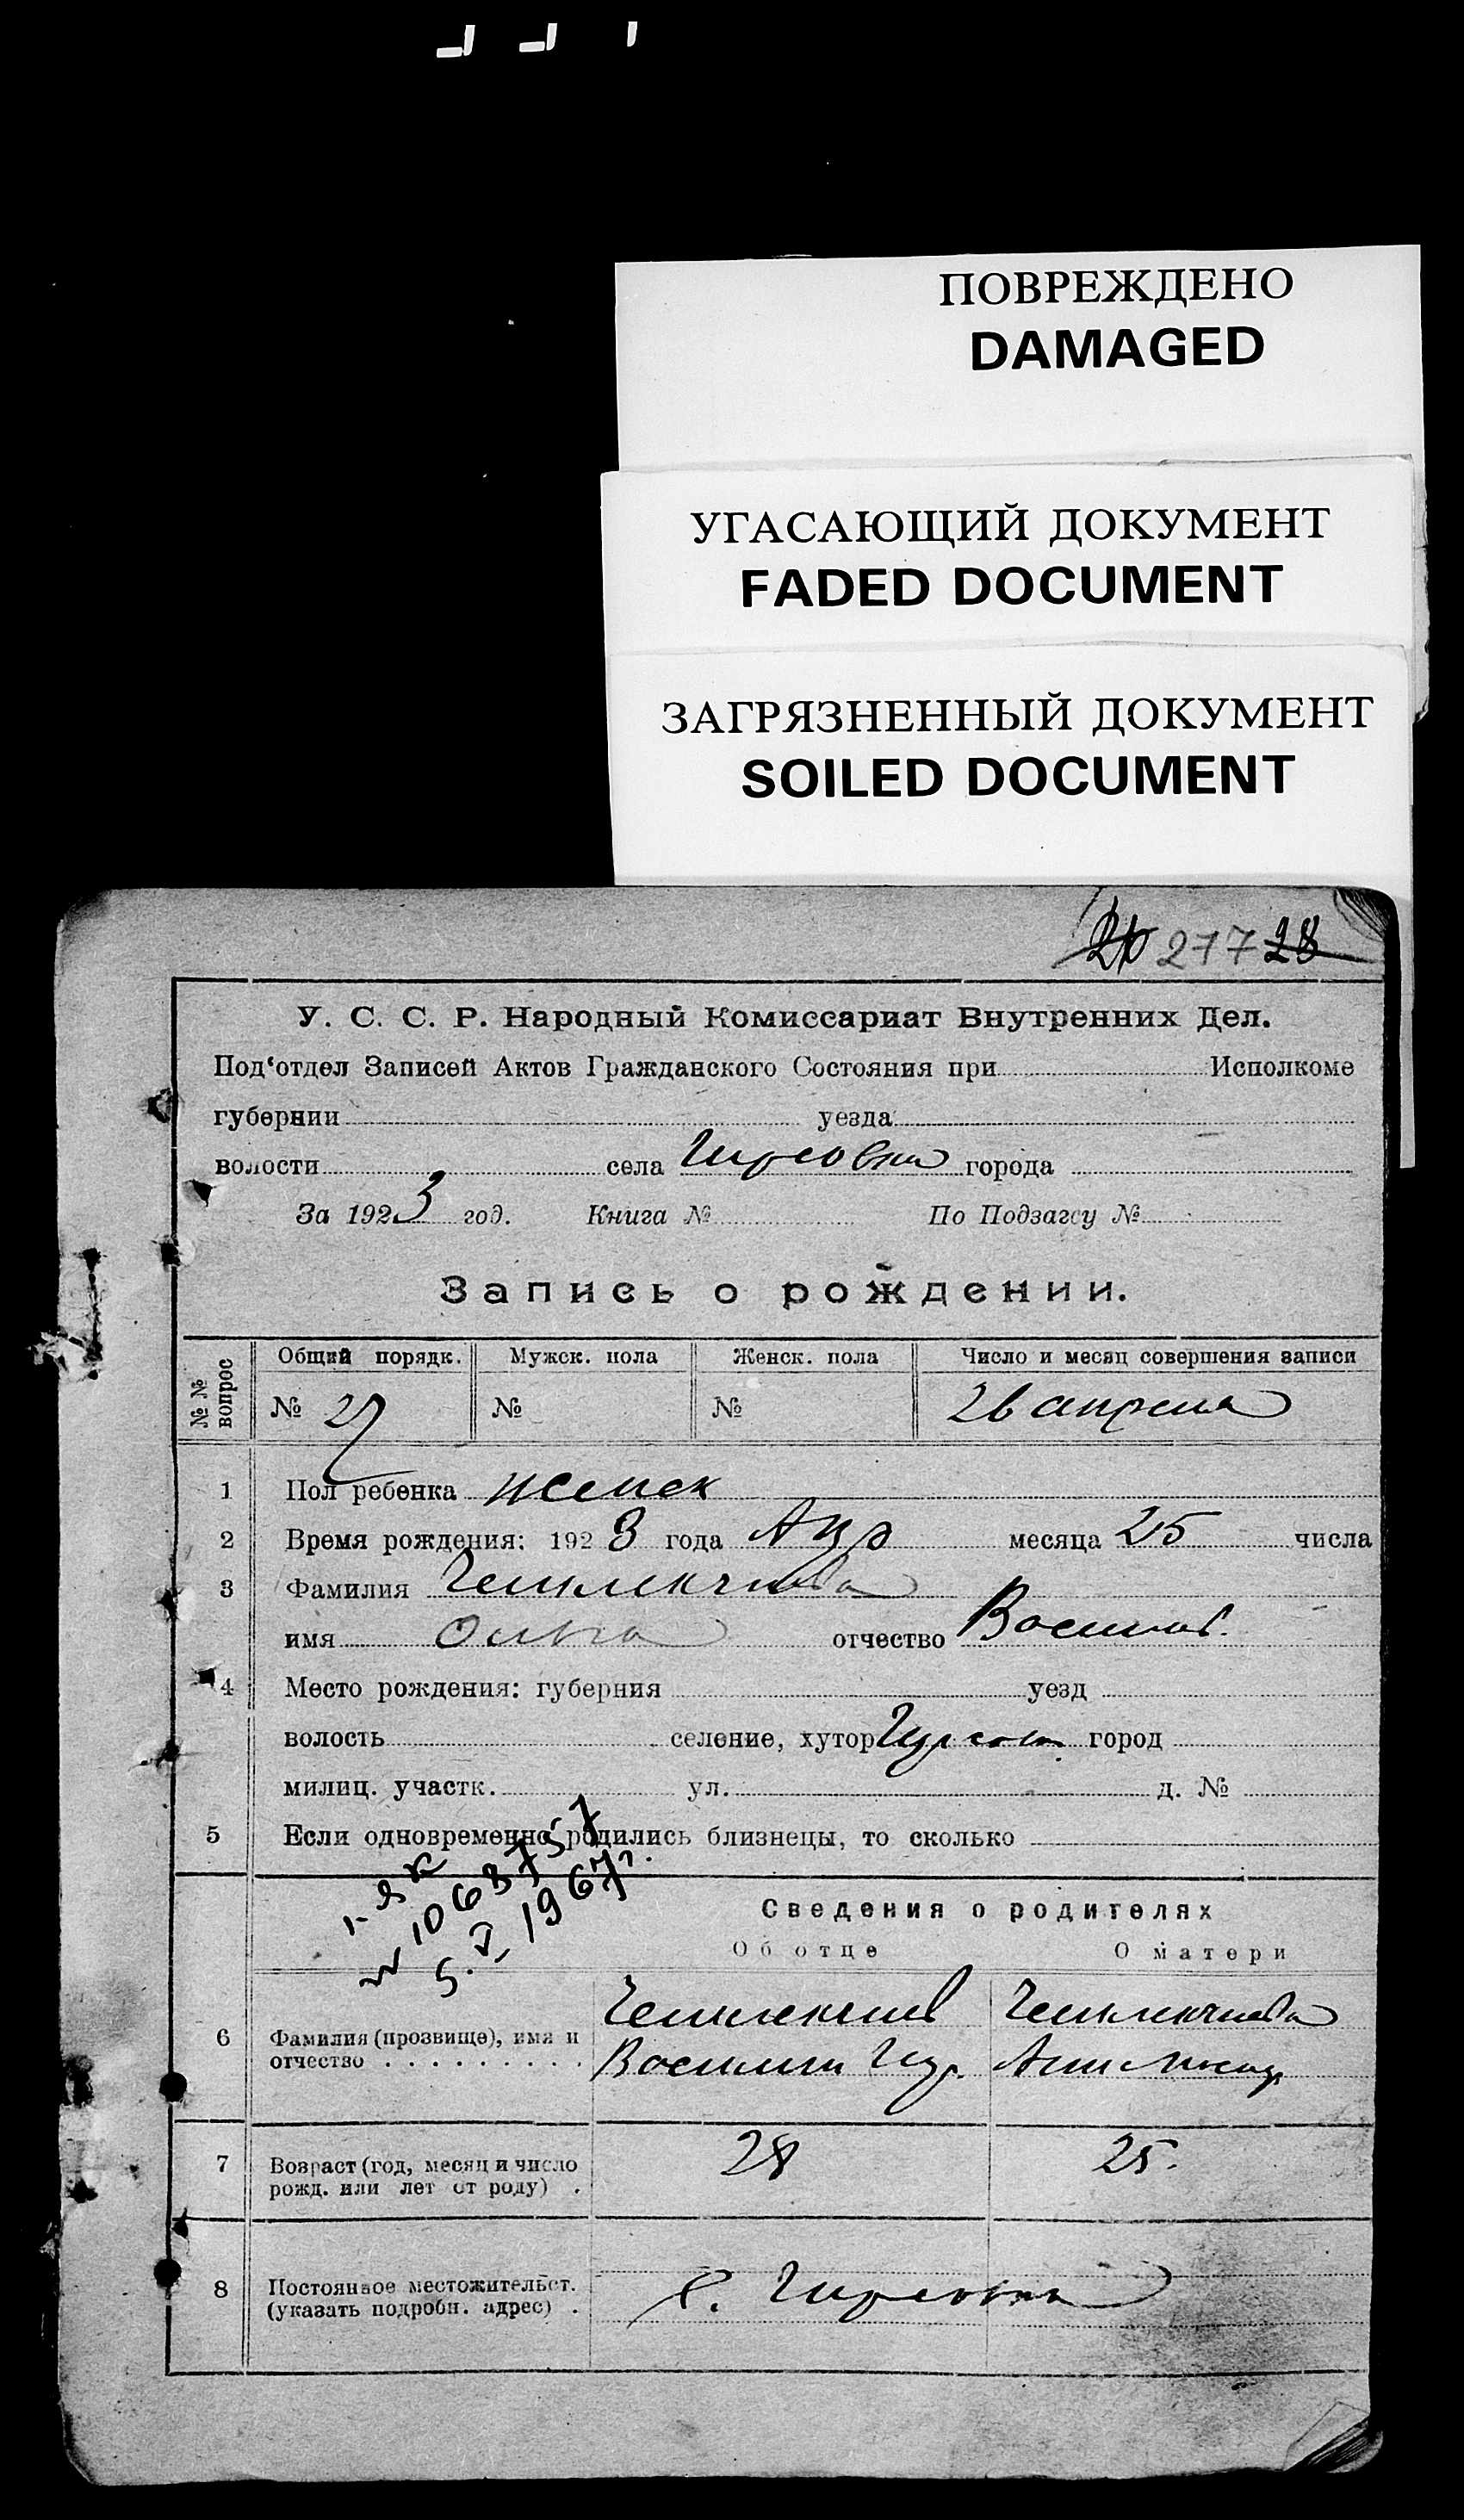 ПОВРЕЖДЕНО
DAMAGED
УГАСАЮЩИЙ ДОКУМЕНТ
FADED DOCUMENT
ЗАГРЯЗНЕННЫЙ ДОКУМЕНТ
SOILED DOCUMENT
277 28
У. С. С. Р. Народный Комиссариат Внутренних Дел.
Под'отдел Записей Актов Гражданского Состояния при Исполкоме
губернии уезда
волости села города
За 1923 год. Книга № По Подзагсу №
Запись о рождении.
№ № вопрос Общий порядк. Мужск. пола Женск. пола Число и месяц совершения записи
№ 27 № № 26 апреля
1 Пол ребенка женск
2 Время рождения: 1923 года Апр месяца 25 числа
3 Фамилия
имя Ольга отчество Васильев.
4 Место рождения: губерния уезд
волость селение, хутор город
милиц. участк. ул. д. №
5 Если одновременно родились близнецы, то сколько
I-ЯК
№ 1068757
5.V 1967г.
Сведения о родителях
Об отце О матери
6 Фамилия (прозвище), имя и
отчество
7 Возраст (год, месяц и число
рожд. или лет от роду) . 28 25.
8 Постоянное местожительст.
(указать подробн. адрес) .